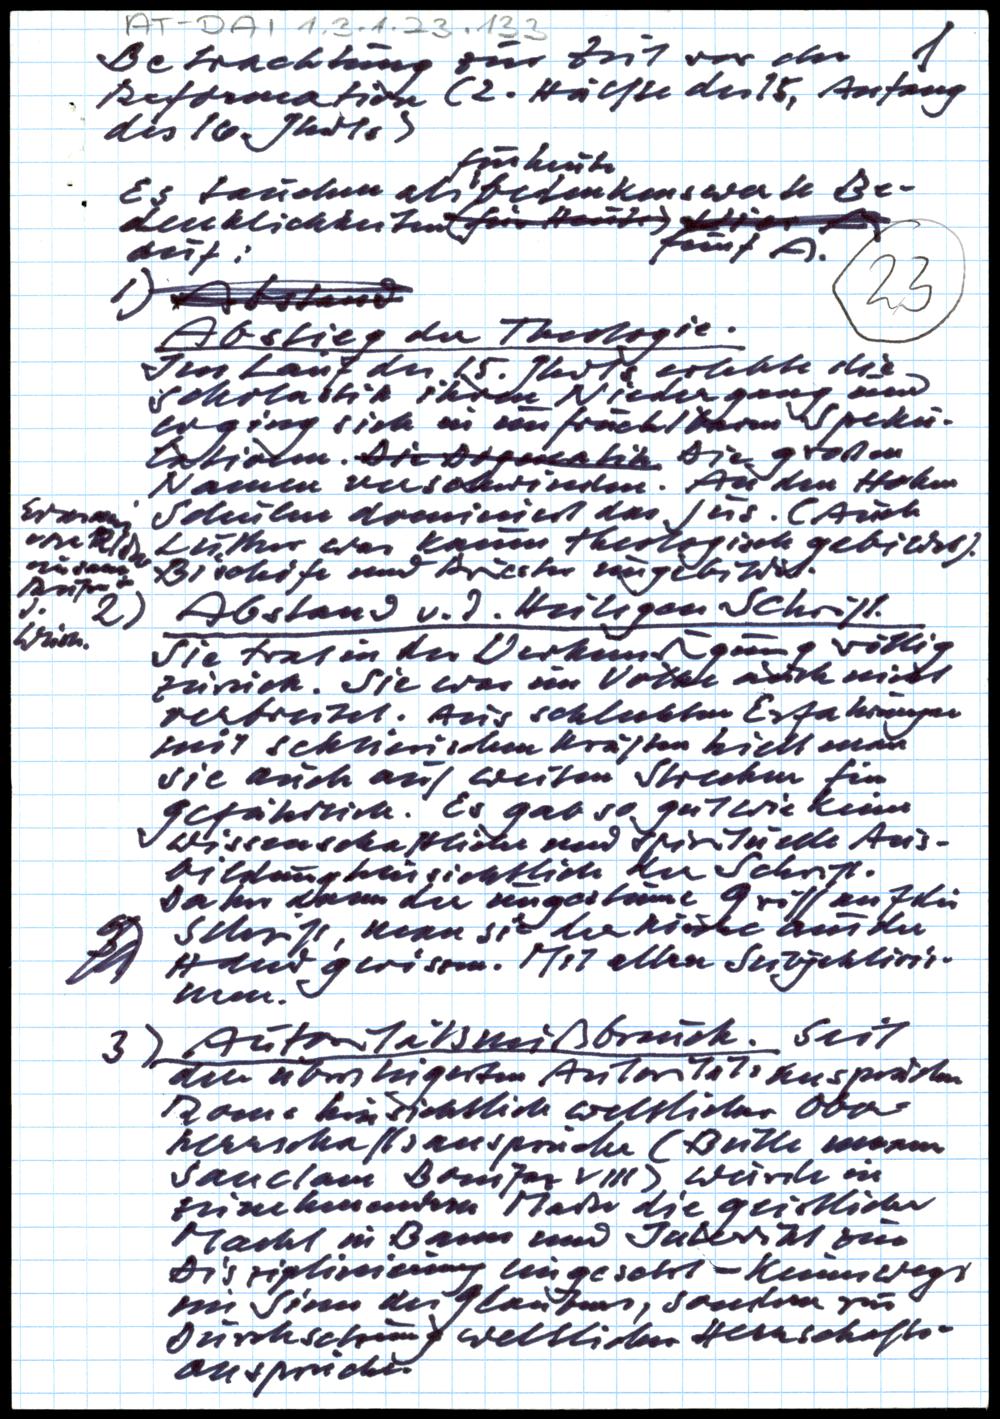 AT-DAI 1.3.1.23.133
1
Betrachtung zur Zeit vor der
Reformation (2. Hälfte des 15, Anfang
des 16. Jhdts)
für heute
Es tauchen als bedenkenswerte Be-
denklichkeiten (für Heute)
fünf A.
auf:
23
1) Abstand
Abstieg der Theologie.
Im Lauf des 15. Jhdts erlebte die
Scholastik ihren Niedergang und
erging sich in unfruchtbaren Speku-
lationen. Die Dogmatik Die großen
Namen verschwinden. An den Hohen
Schulen dominiert das Jus. (Auch
Luther war kaum theologisch gebildet).
Bischöfe und Priester ungebildet.
2) Abstand v. d. Heiligen Schrift.
Sie trat in der Verkündigung völlig
zurück. Sie war im Volke auch nicht
verbreitet. Aus schlechten Erfahrungen
mit sektierischen Kräften hielt man
sie auch auf weiten Strecken für
gefährlich. Es gab so gut wie keine
wissenschaftliche und spirituelle Aus-
bildung hinsichtlich der Schrift.
Daher dann der ungestüme Griff auf die
Schrift, man sie der Kirche aus der
Hand gerissen. Mit allen Subjektivis-
men.
3) Autoritätsmißbrauch. Seit
den übersteigerten Autoritätsansprüchen
Roms hinsichtlich weltlicher Ober-
herrschaftsansprüche (Bulle unam
sanctam Bonifaz VIII) wurde in
zunehmendem Maße die geistliche
Macht in Bann und Interdikt zur
Disziplinierung eingesetzt – keineswegs
im Sinn des Glaubens, sondern zur
Durchsetzung weltlicher Herrschafts-
ansprüche.